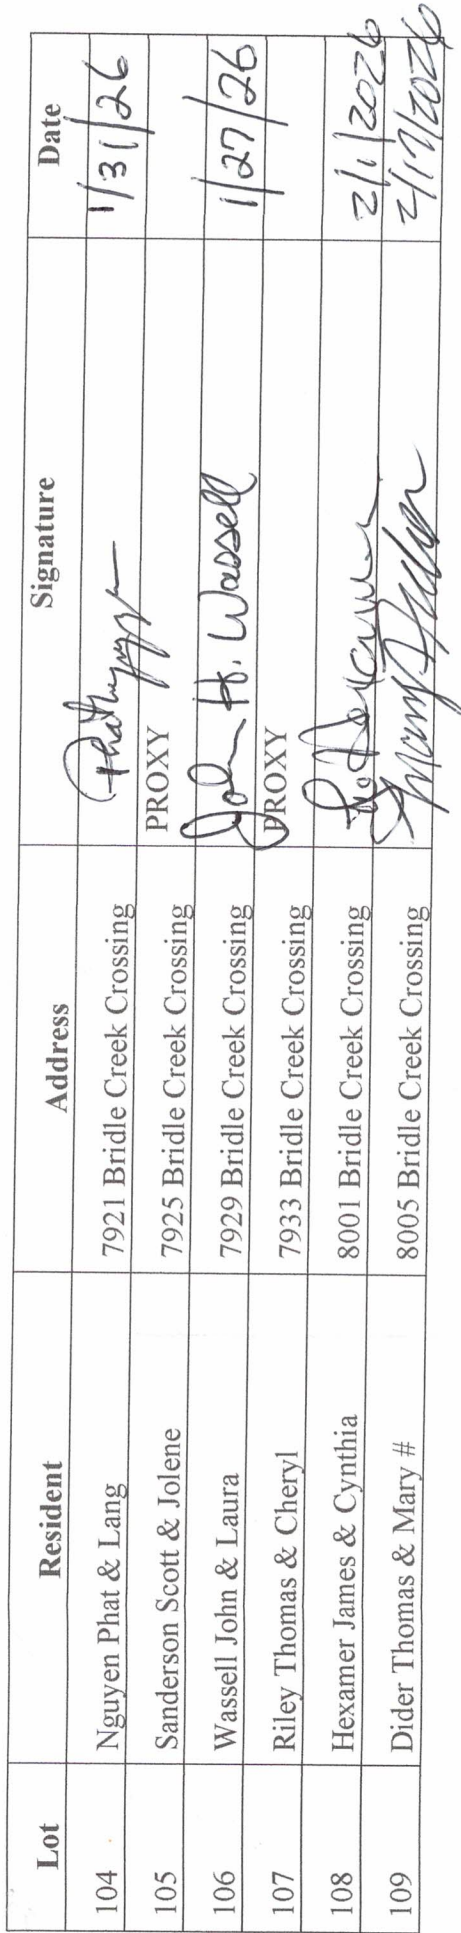 Lot Resident Address Signature Date
104 Nguyen Phat & Lang 7921 Bridle Creek Crossing 1/31/26
105 Sanderson Scott & Jolene 7925 Bridle Creek Crossing PROXY
106 Wassell John & Laura 7929 Bridle Creek Crossing John H. Wassell 1/27/26
107 Riley Thomas & Cheryl 7933 Bridle Creek Crossing PROXY
108 Hexamer James & Cynthia 8001 Bridle Creek Crossing 2/1/2026
109 Dider Thomas & Mary # 8005 Bridle Creek Crossing Mary 2/17/2026